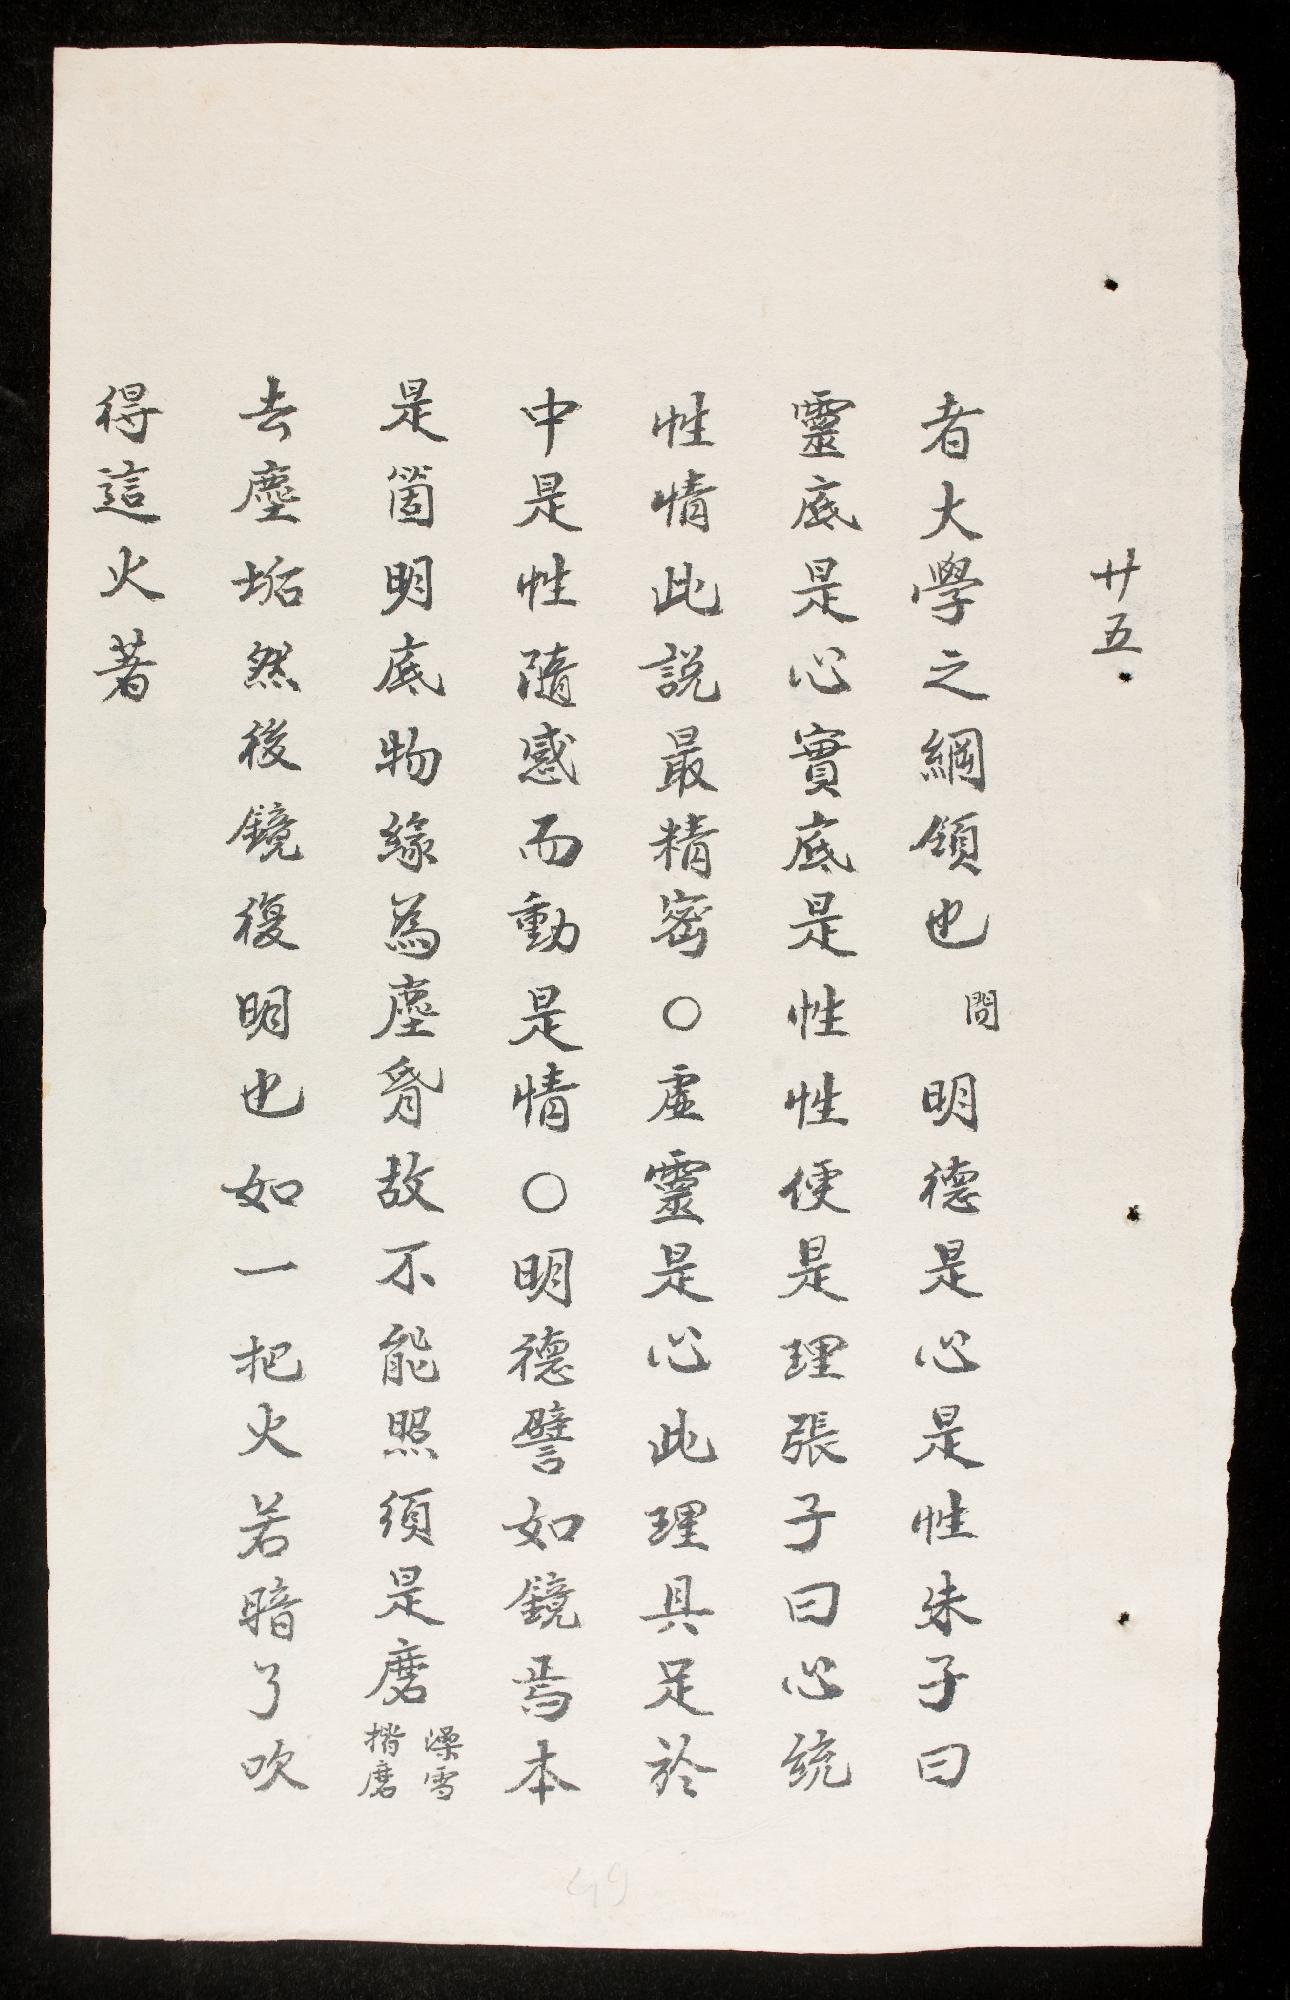 廿五
者大學之綱領也問明德是心是性朱子曰
靈底是心實底是性性便是理張子曰心統
性情此説最精密○虛靈是心此理具足於
中是性隨感而動是情○明德譬如鏡焉本
是箇明底物緣為塵昏故不能照須是磨澡雪揩磨
去塵垢然後鏡復明也如一把火若暗了吹
得這火著
49